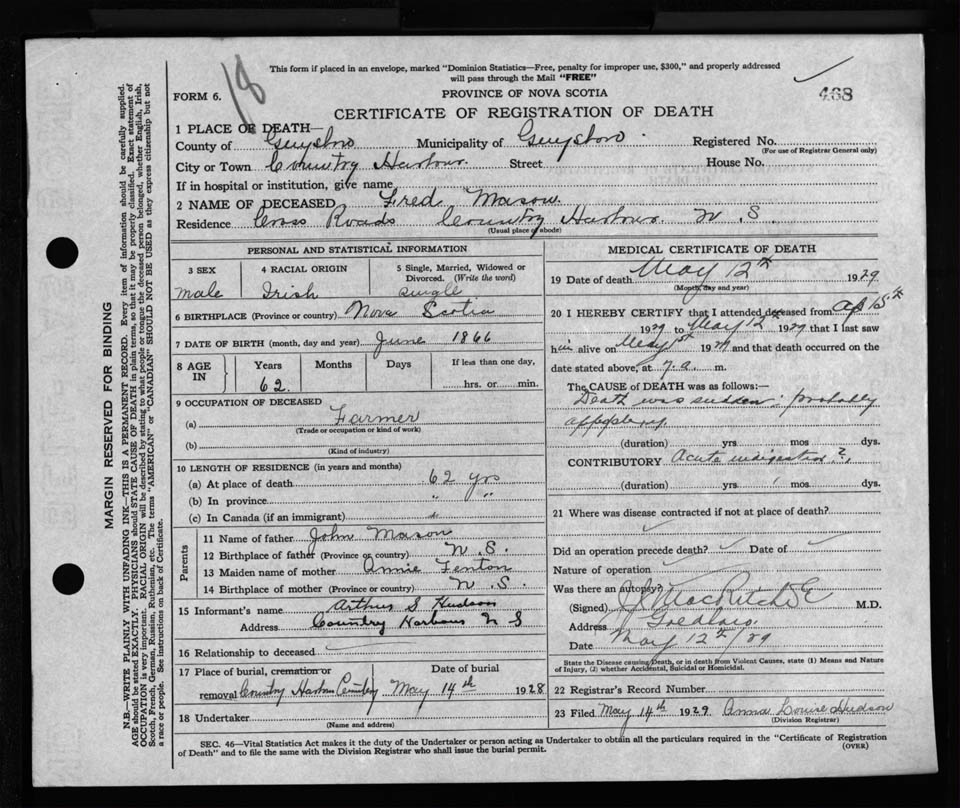 18
This form if placed in an envelope, marked "Dominion Statistics—Free, penalty for improper use, $300," and properly addressed
will pass through the Mail "FREE"
468
FORM 6.
PROVINCE OF NOVA SCOTIA
CERTIFICATE OF REGISTRATION OF DEATH
1 PLACE OF DEATH—
County of Guysboro Municipality of Guysboro Registered No.
(For use of Registrar General only)
City or Town Country Harbour Street House No.
If in hospital or institution, give name
2 NAME OF DECEASED Fred Mason
Residence Cross Roads Country Harbour N.S.
(Usual place of abode)
PERSONAL AND STATISTICAL INFORMATION
3 SEX 4 RACIAL ORIGIN 5 Single, Married, Widowed or
Divorced. (Write the word)
male Irish single
6 BIRTHPLACE (Province or country) Nova Scotia
7 DATE OF BIRTH (month, day and year) June 1866
8 AGE IN Years Months Days If less than one day,
62 hrs. or min.
9 OCCUPATION OF DECEASED
(a) Farmer
(Trade or occupation or kind of work)
(b)
(Kind of industry)
10 LENGTH OF RESIDENCE (in years and months)
(a) At place of death 62 yrs
(b) In province " "
(c) In Canada (if an immigrant)
Parents
11 Name of father John Mason
12 Birthplace of father (Province or country) N.S.
13 Maiden name of mother Annie Fenton
14 Birthplace of mother (Province or country) N.S.
15 Informant's name Arthur S Hudson
Address Country Harbour N S
16 Relationship to deceased
17 Place of burial, cremation or Date of burial
removal Country Harbour Cemetery May 14th 1928
18 Undertaker
(Name and address)
MEDICAL CERTIFICATE OF DEATH
19 Date of death May 12th 1929
(Month, day and year)
20 I HEREBY CERTIFY that I attended deceased from Ap 15th
1929 to May 12th 1929 that I last saw
him alive on May 1st 1929 and that death occurred on
date stated above, at 7 a. m.
The CAUSE of DEATH was as follows:—
Death was sudden: probably
apoplexy
(duration) yrs. mos. dys.
CONTRIBUTORY Acute indigestion?
(duration) yrs. mos. dys.
21 Where was disease contracted if not at place of death?
Did an operation precede death? Date of
Nature of operation
Was there an autopsy?
(Signed) MacRitchie M.D.
Address Goldboro
Date May 12th/29
State the Disease causing Death, or in death from Violent Causes, state (1) Means and Nature
of Injury, (2) whether Accidental, Suicidal or Homicidal.
22 Registrar's Record Number
23 Filed May 14th 1929 Anna Louise Hudson
(Division Registrar)
SEC. 46—Vital Statistics Act makes it the duty of the Undertaker or person acting as Undertaker to obtain all the particulars required in the "Certificate of Registration
of Death" and to file the same with the Division Registrar who shall issue the burial permit.
(OVER)
MARGIN RESERVED FOR BINDING
N.B.—WRITE PLAINLY WITH UNFADING INK—THIS IS A PERMANENT RECORD. Every item of information should be carefully supplied.
AGE should be stated EXACTLY. PHYSICIANS should STATE CAUSE OF DEATH in plain terms, so that it may be properly classified. Exact statement of
OCCUPATION is very important. RACIAL ORIGIN will be described by stating to what people or tongue the deceased person belonged, whether English, Irish,
Scotch, French, German, Russian, Ruthenian, etc. The terms "AMERICAN" or "CANADIAN" SHOULD NOT BE USED as they express citizenship but not
a race or people. See instructions on back of Certificate.